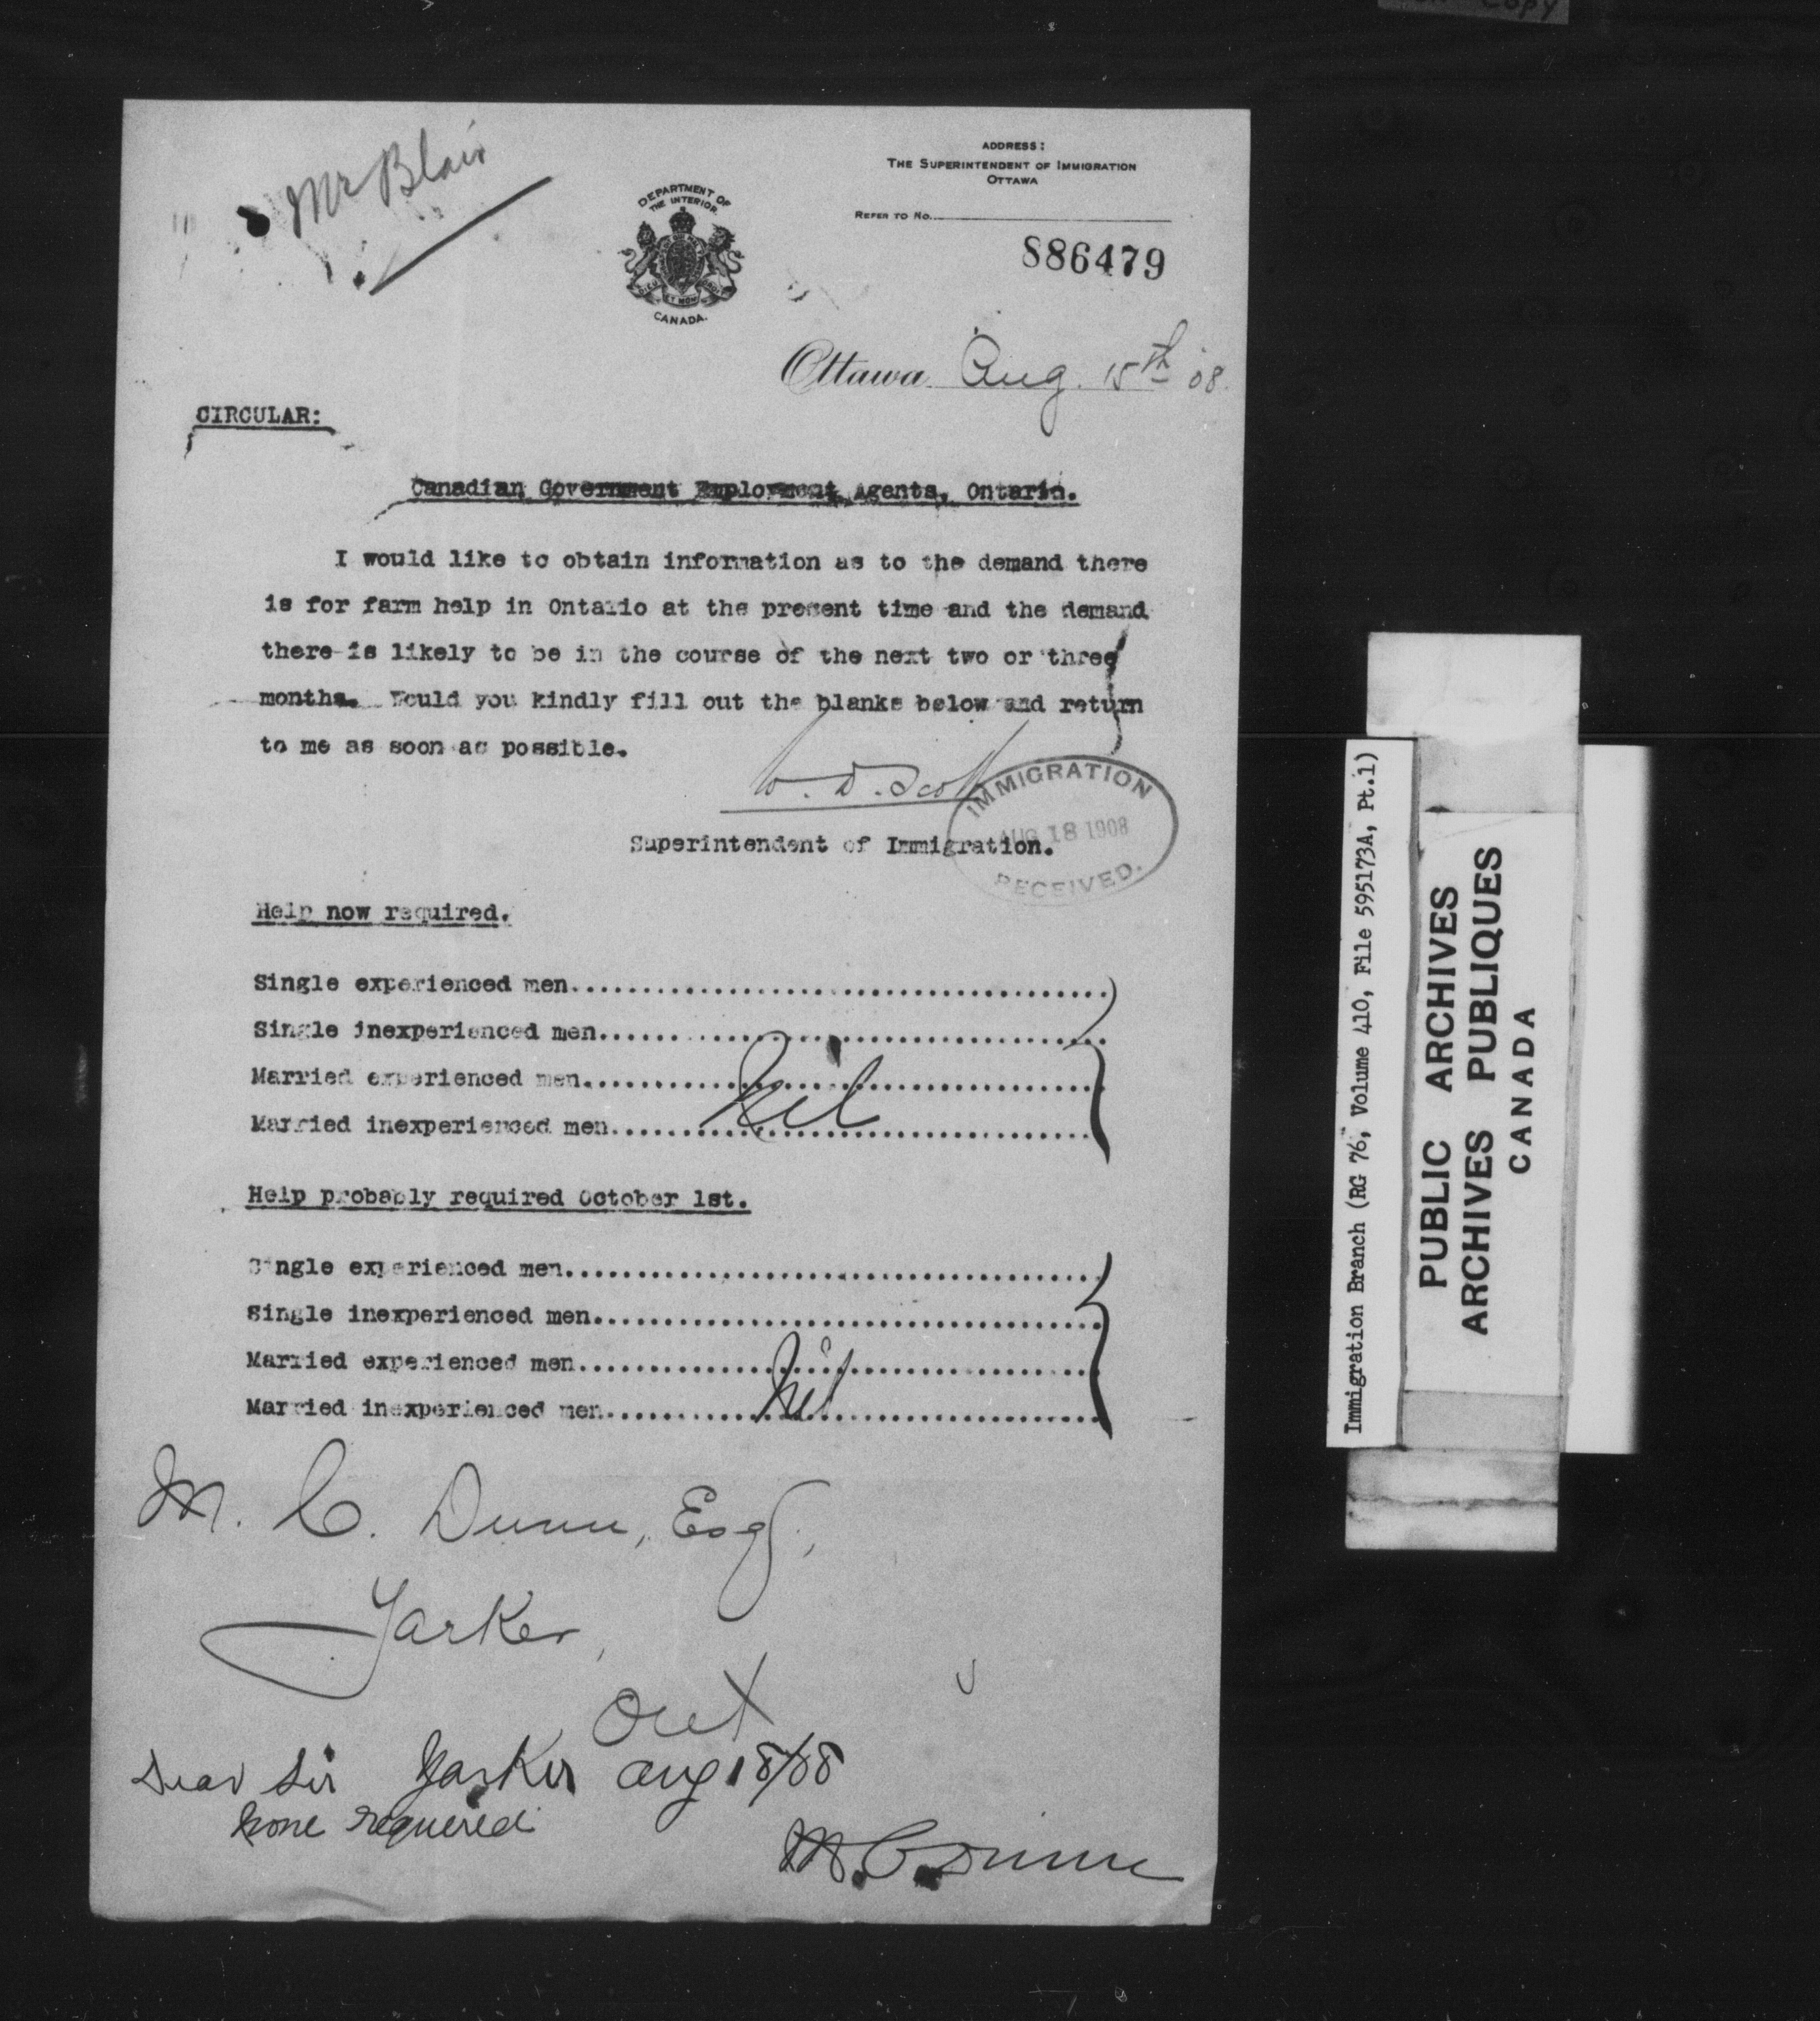 Copy
Mr Blair
ADDRESS:
THE SUPERINTENDENT OF IMMIGRATION
OTTAWA
REFER TO NO.
886479
DEPARTMENT OF
THE INTERIOR
DIEU ET MON DROIT
CANADA.
Ottawa Aug. 15th '08.
CIRCULAR:
Canadian Government Employment Agents, Ontario.
I would like to obtain information as to the demand there
is for farm help in Ontario at the present time and the demand
there is likely to be in the course of the next two or three
months. Would you kindly fill out the blanks below and return
to me as soon as possible.
W. D. Scott
Superintendent of Immigration.
IMMIGRATION
AUG 18 1908
RECEIVED.
Help now required.
Single experienced men
Single inexperienced men
Married experienced men
Married inexperienced men
Nil
Help probably required October 1st.
Single experienced men
Single inexperienced men
Married experienced men
Married inexperienced men
Nil
M. C. Dunn, Esq,
Yarker,
Ont
Dear Sir Yarker Aug 18/08
None required
M. C. Dunn
Immigration Branch (RG 76, Volume 410, File 595173A, Pt.1)
PUBLIC ARCHIVES
ARCHIVES PUBLIQUES
CANADA